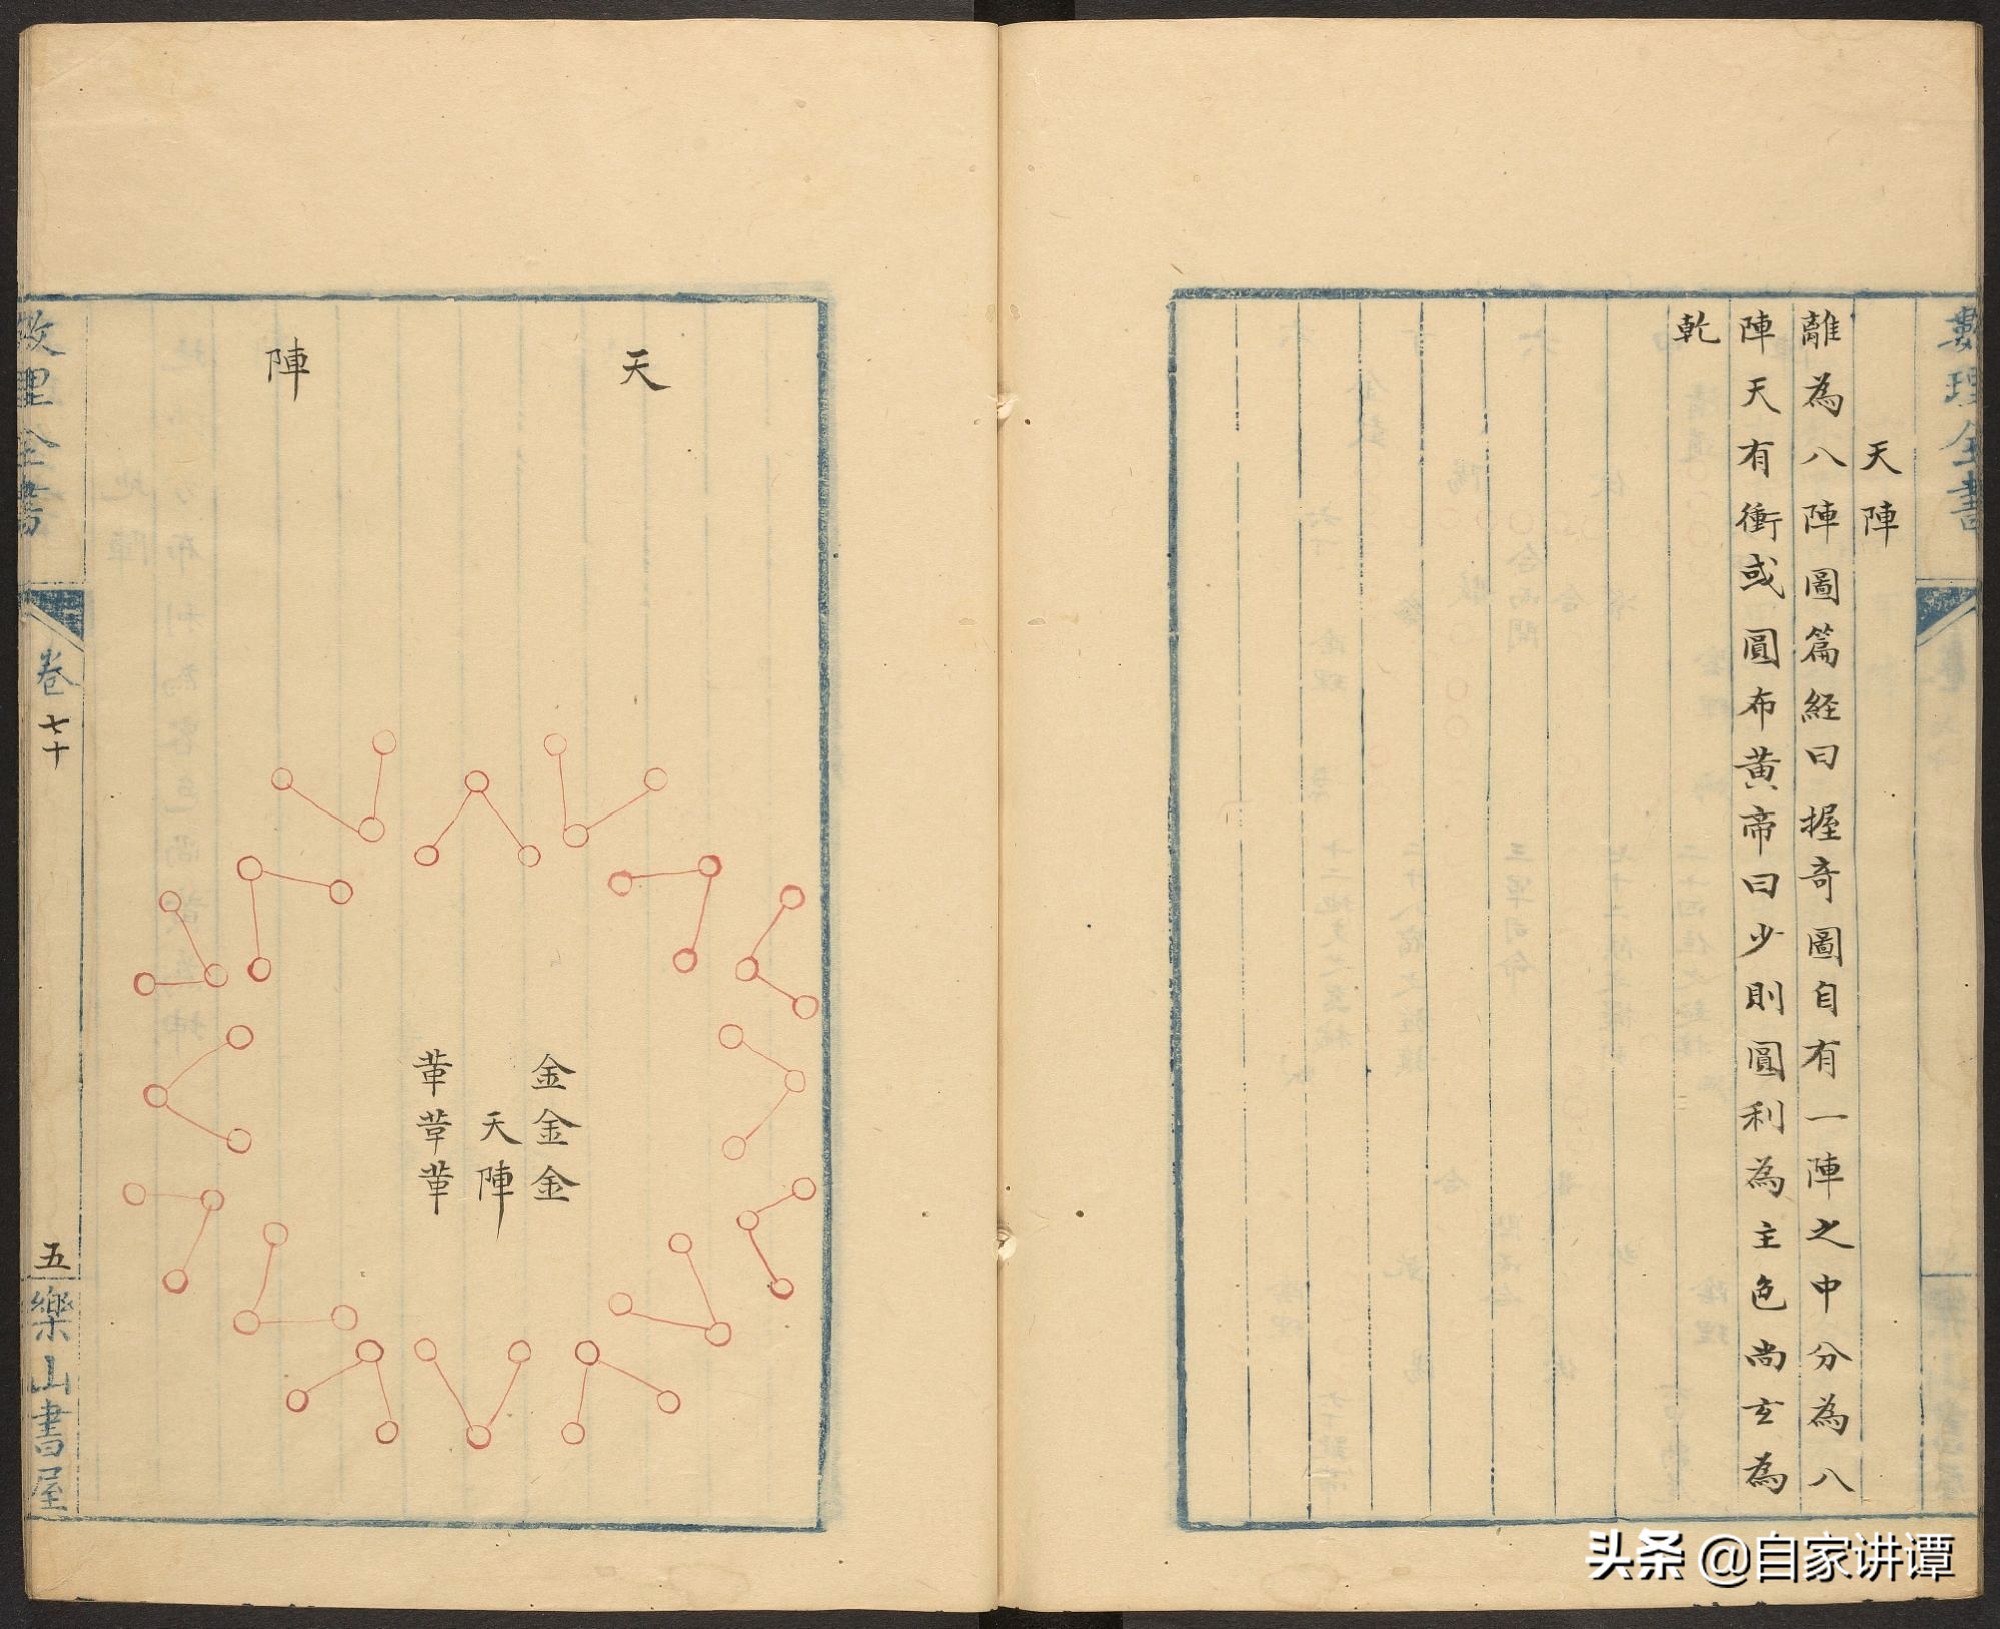 數理全書
天陣
離為八陣圖篇経曰握奇圖自有一陣之中分為八
陣天有衝或圓布黃帝曰少則圓利為主色尚玄為
乾
天
陣
金金金
天陣
革革革
數理全書
卷七十
五
樂山書屋
头条 @自家讲谭